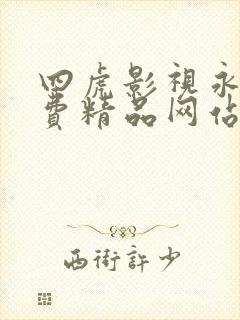 四虎影視永
費精品网佔
西街許少